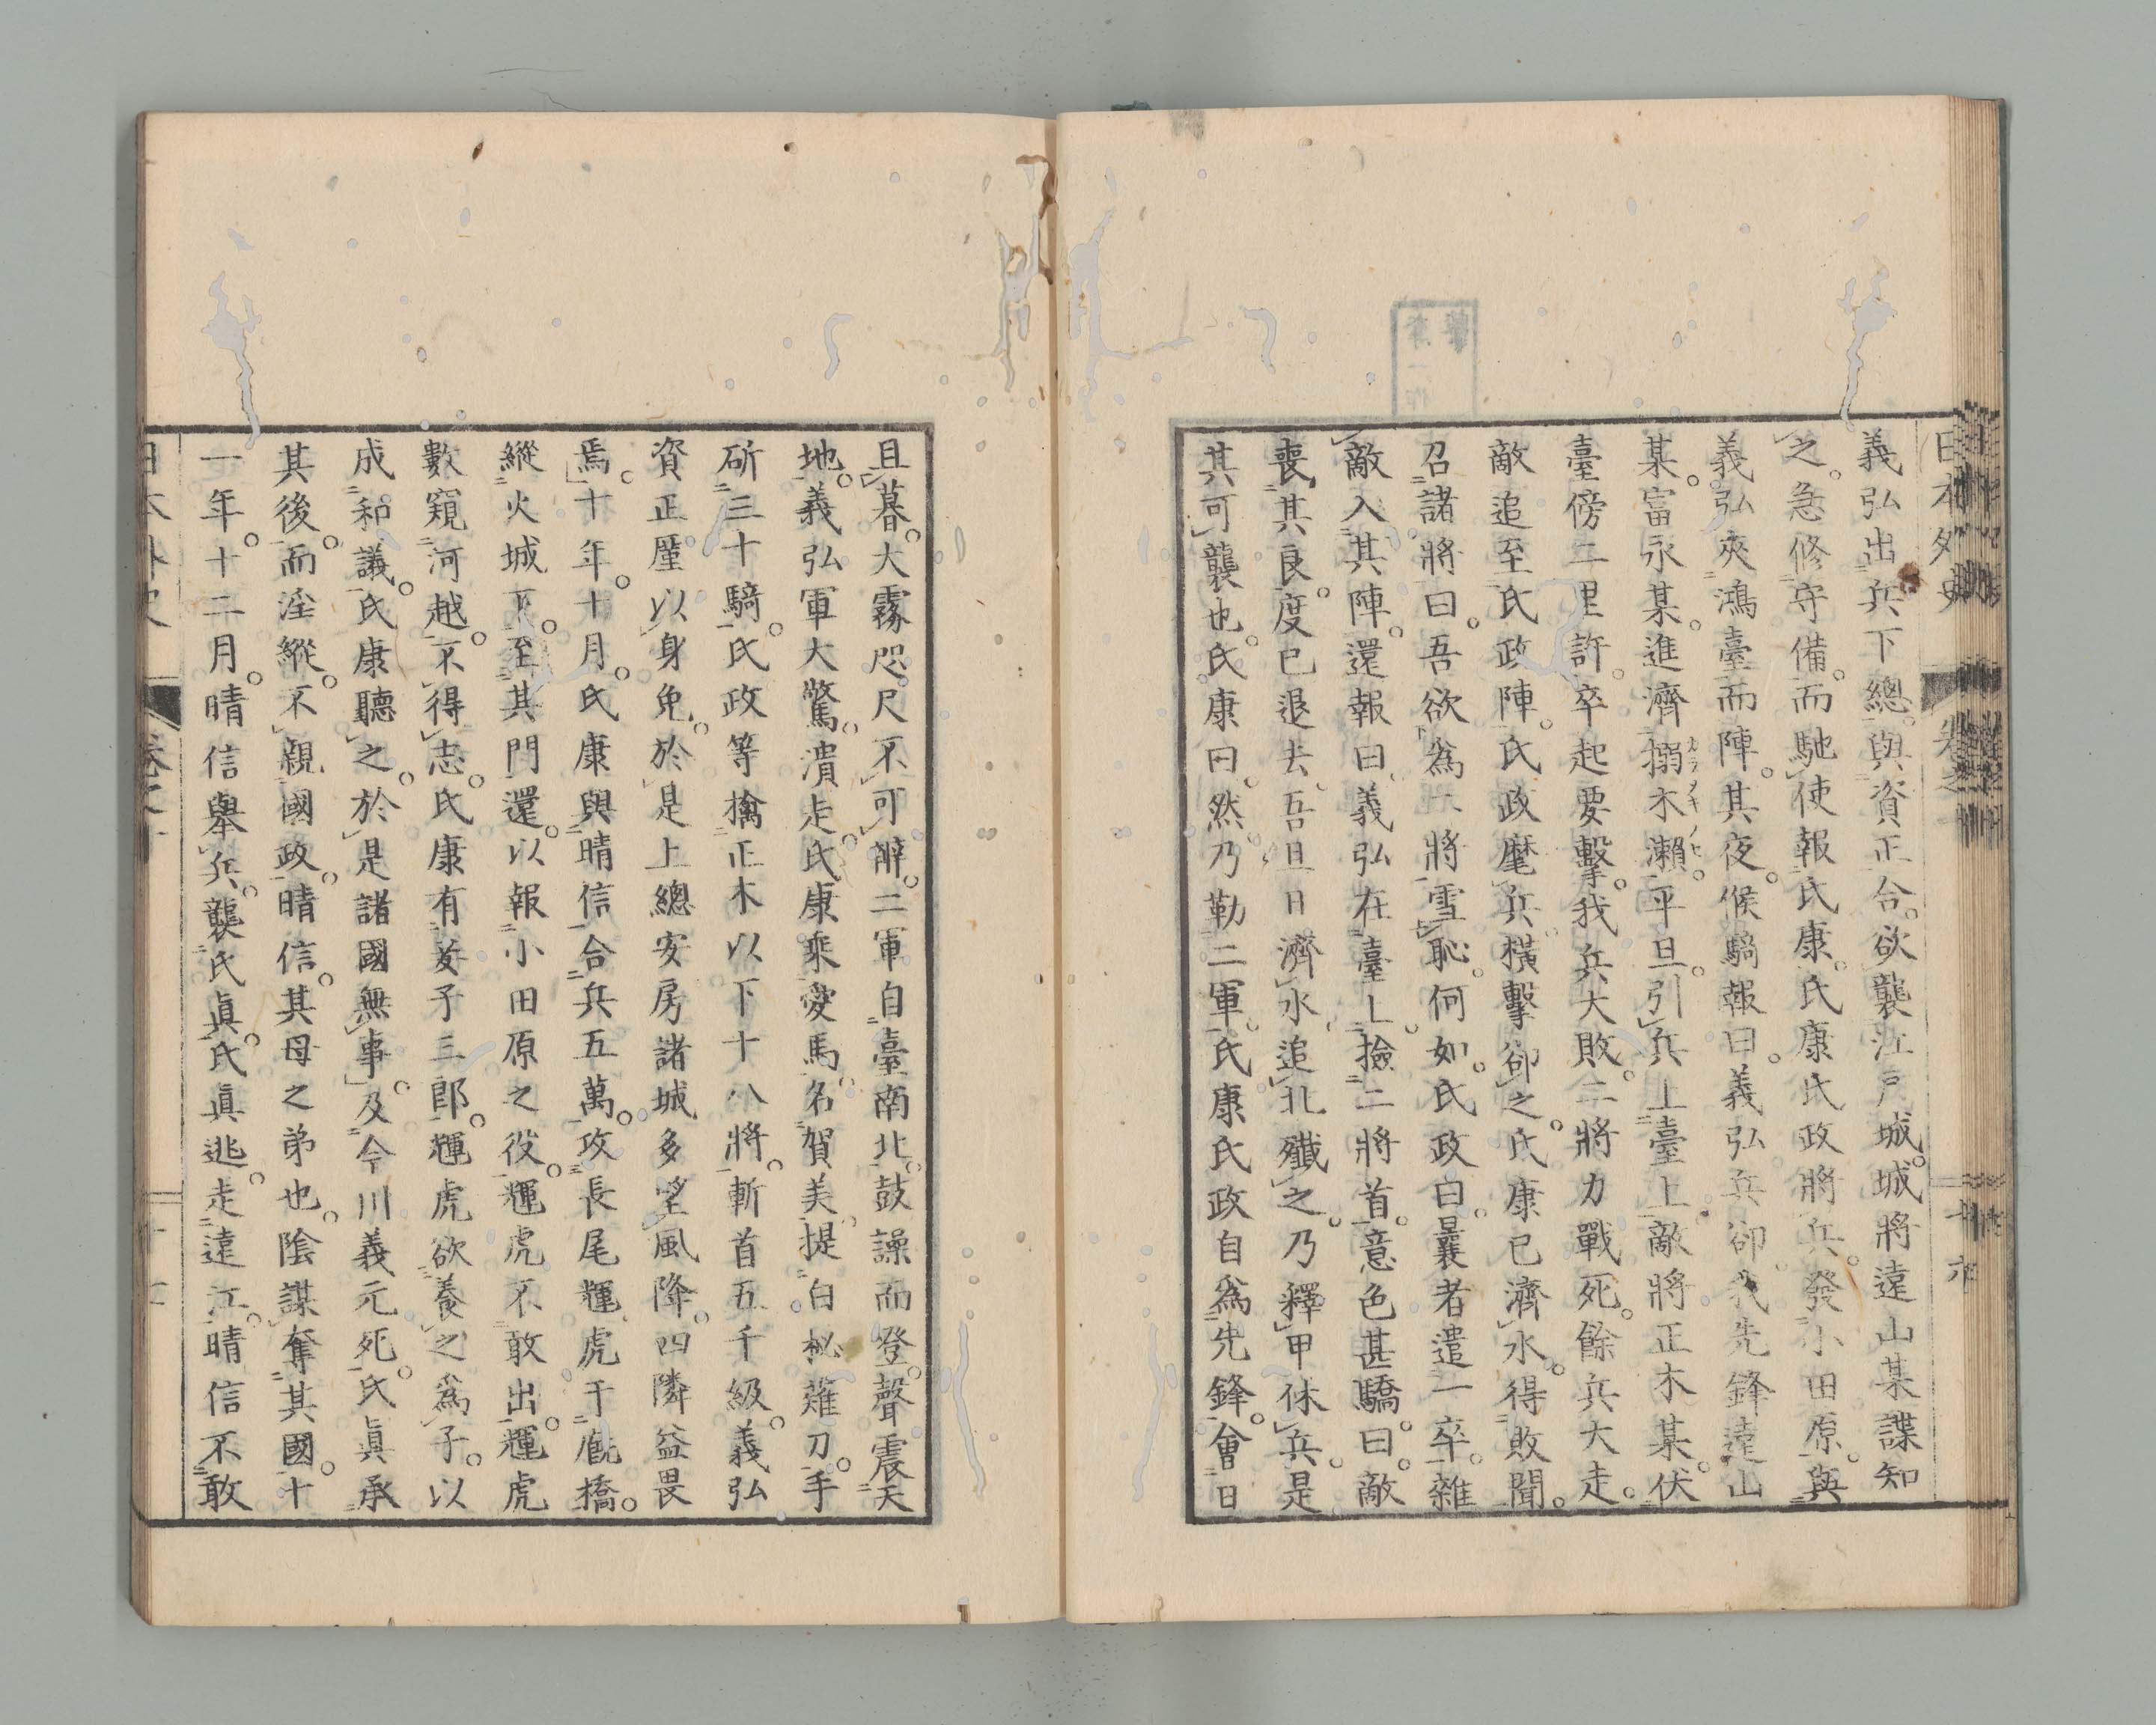 義弘出兵下總與資正合欲襲江戸城城將遠山某諜知
之急修守備而馳使報氏康氏康氏政將兵發小田原與
義弘夾鴻臺而陣其夜候騎報曰義弘兵卻我先鋒遠山
某富永某進濟搦木瀨平旦引兵上臺上敵將正木某伏
臺傍二里許卒起要擊我兵大敗二將力戰死餘兵大走
敵追至氏政陣氏政麾兵橫擊卻之氏康已濟水得敗聞
召諸將曰吾欲爲二將雪恥何如氏政曰曩者遣一卒雜
敵入其陣還報曰義弘在臺上撿二將首意色甚驕曰敵
喪其良度已退去吾旦日濟水追北殲之乃釋甲休兵是
其可襲也氏康曰然乃勒二軍氏康氏政自爲先鋒會日
且暮大霧咫尺不可辭二軍自臺南北鼓譟而登聲震天
地義弘軍大驚潰走氏康乘愛馬名賀美提白柲薙刀手
斫三十騎氏政等擒正木以下十八將斬首五千級義弘
資正厪以身免於是上總安房諸城多望風降四隣益畏
焉十年十月氏康與晴信合兵五萬攻長尾輝虎于廐橋
縱火城下至其門還以報小田原之役輝虎不敢出輝虎
數窺河越不得志氏康有妾子三郎輝虎欲養之爲子以
成和議氏康聽之於是諸國無事及今川義元死氏眞承
其後而淫縱不親國政晴信其母之弟也陰謀奪其國十
一年十二月晴信舉兵襲氏眞氏眞逃走遠江晴信不敢
日本外史 卷之十